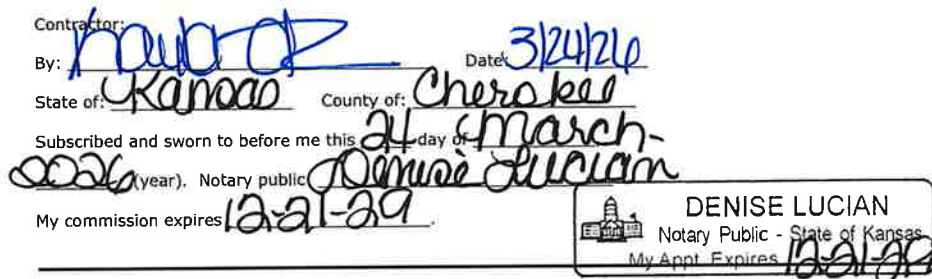 Contractor:
By: Date: 3/24/26
State of: Kansas County of: Cherokee
Subscribed and sworn to before me this 24 day of March
2026 (year). Notary public Denise Lucian
My commission expires 12-21-29.
DENISE LUCIAN
Notary Public - State of Kansas
My Appt. Expires 12-21-29